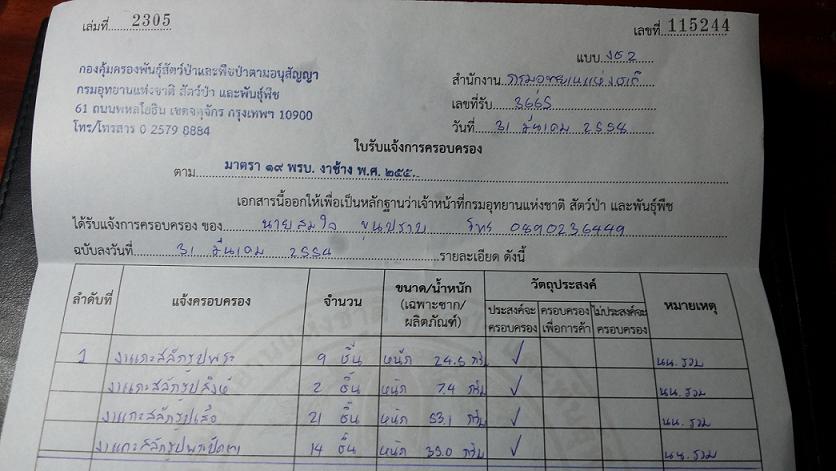 เล่มที่ 2305 เลขที่ 115244
แบบ งช 2
กองคุ้มครองพันธุ์สัตว์ป่าและพืชป่าตามอนุสัญญา
กรมอุทยานแห่งชาติ สัตว์ป่า และพันธุ์พืช
61 ถนนพหลโยธิน เขตจตุจักร กรุงเทพฯ 10900
โทร/โทรสาร 0 2579 8884
สำนักงาน กรมอุทยานแห่งชาติ
เลขที่รับ 3665
วันที่ 31 มีนาคม 2558
ใบรับแจ้งการครอบครอง
ตาม มาตรา ๑๙ พรบ. งาช้าง พ.ศ. ๒๕๕
เอกสารนี้ออกให้เพื่อเป็นหลักฐานว่าเจ้าหน้าที่กรมอุทยานแห่งชาติ สัตว์ป่า และพันธุ์พืช
ได้รับแจ้งการครอบครอง ของ นายสมใจ ขุนปราบ โทร 0890236449
ฉบับลงวันที่ 31 มีนาคม 2558 รายละเอียด ดังนี้
ลำดับที่ แจ้งครอบครอง จำนวน ขนาด/น้ำหนัก (เฉพาะซาก/ผลิตภัณฑ์) วัตถุประสงค์ หมายเหตุ
ประสงค์จะครอบครอง ครอบครองเพื่อการค้า ไม่ประสงค์จะครอบครอง
1 งาแกะสลักรูปพระ 9 ชิ้น หนัก 24.5 กรัม ✓ นน. รวม
งาแกะสลักรูปสิงห์ 2 ชิ้น หนัก 7.4 กรัม ✓ นน. รวม
งาแกะสลักรูปเสือ 21 ชิ้น หนัก 53.1 กรัม ✓ นน. รวม
งาแกะสลักรูปพระปิดตา 14 ชิ้น หนัก 39.0 กรัม ✓ นน. รวม